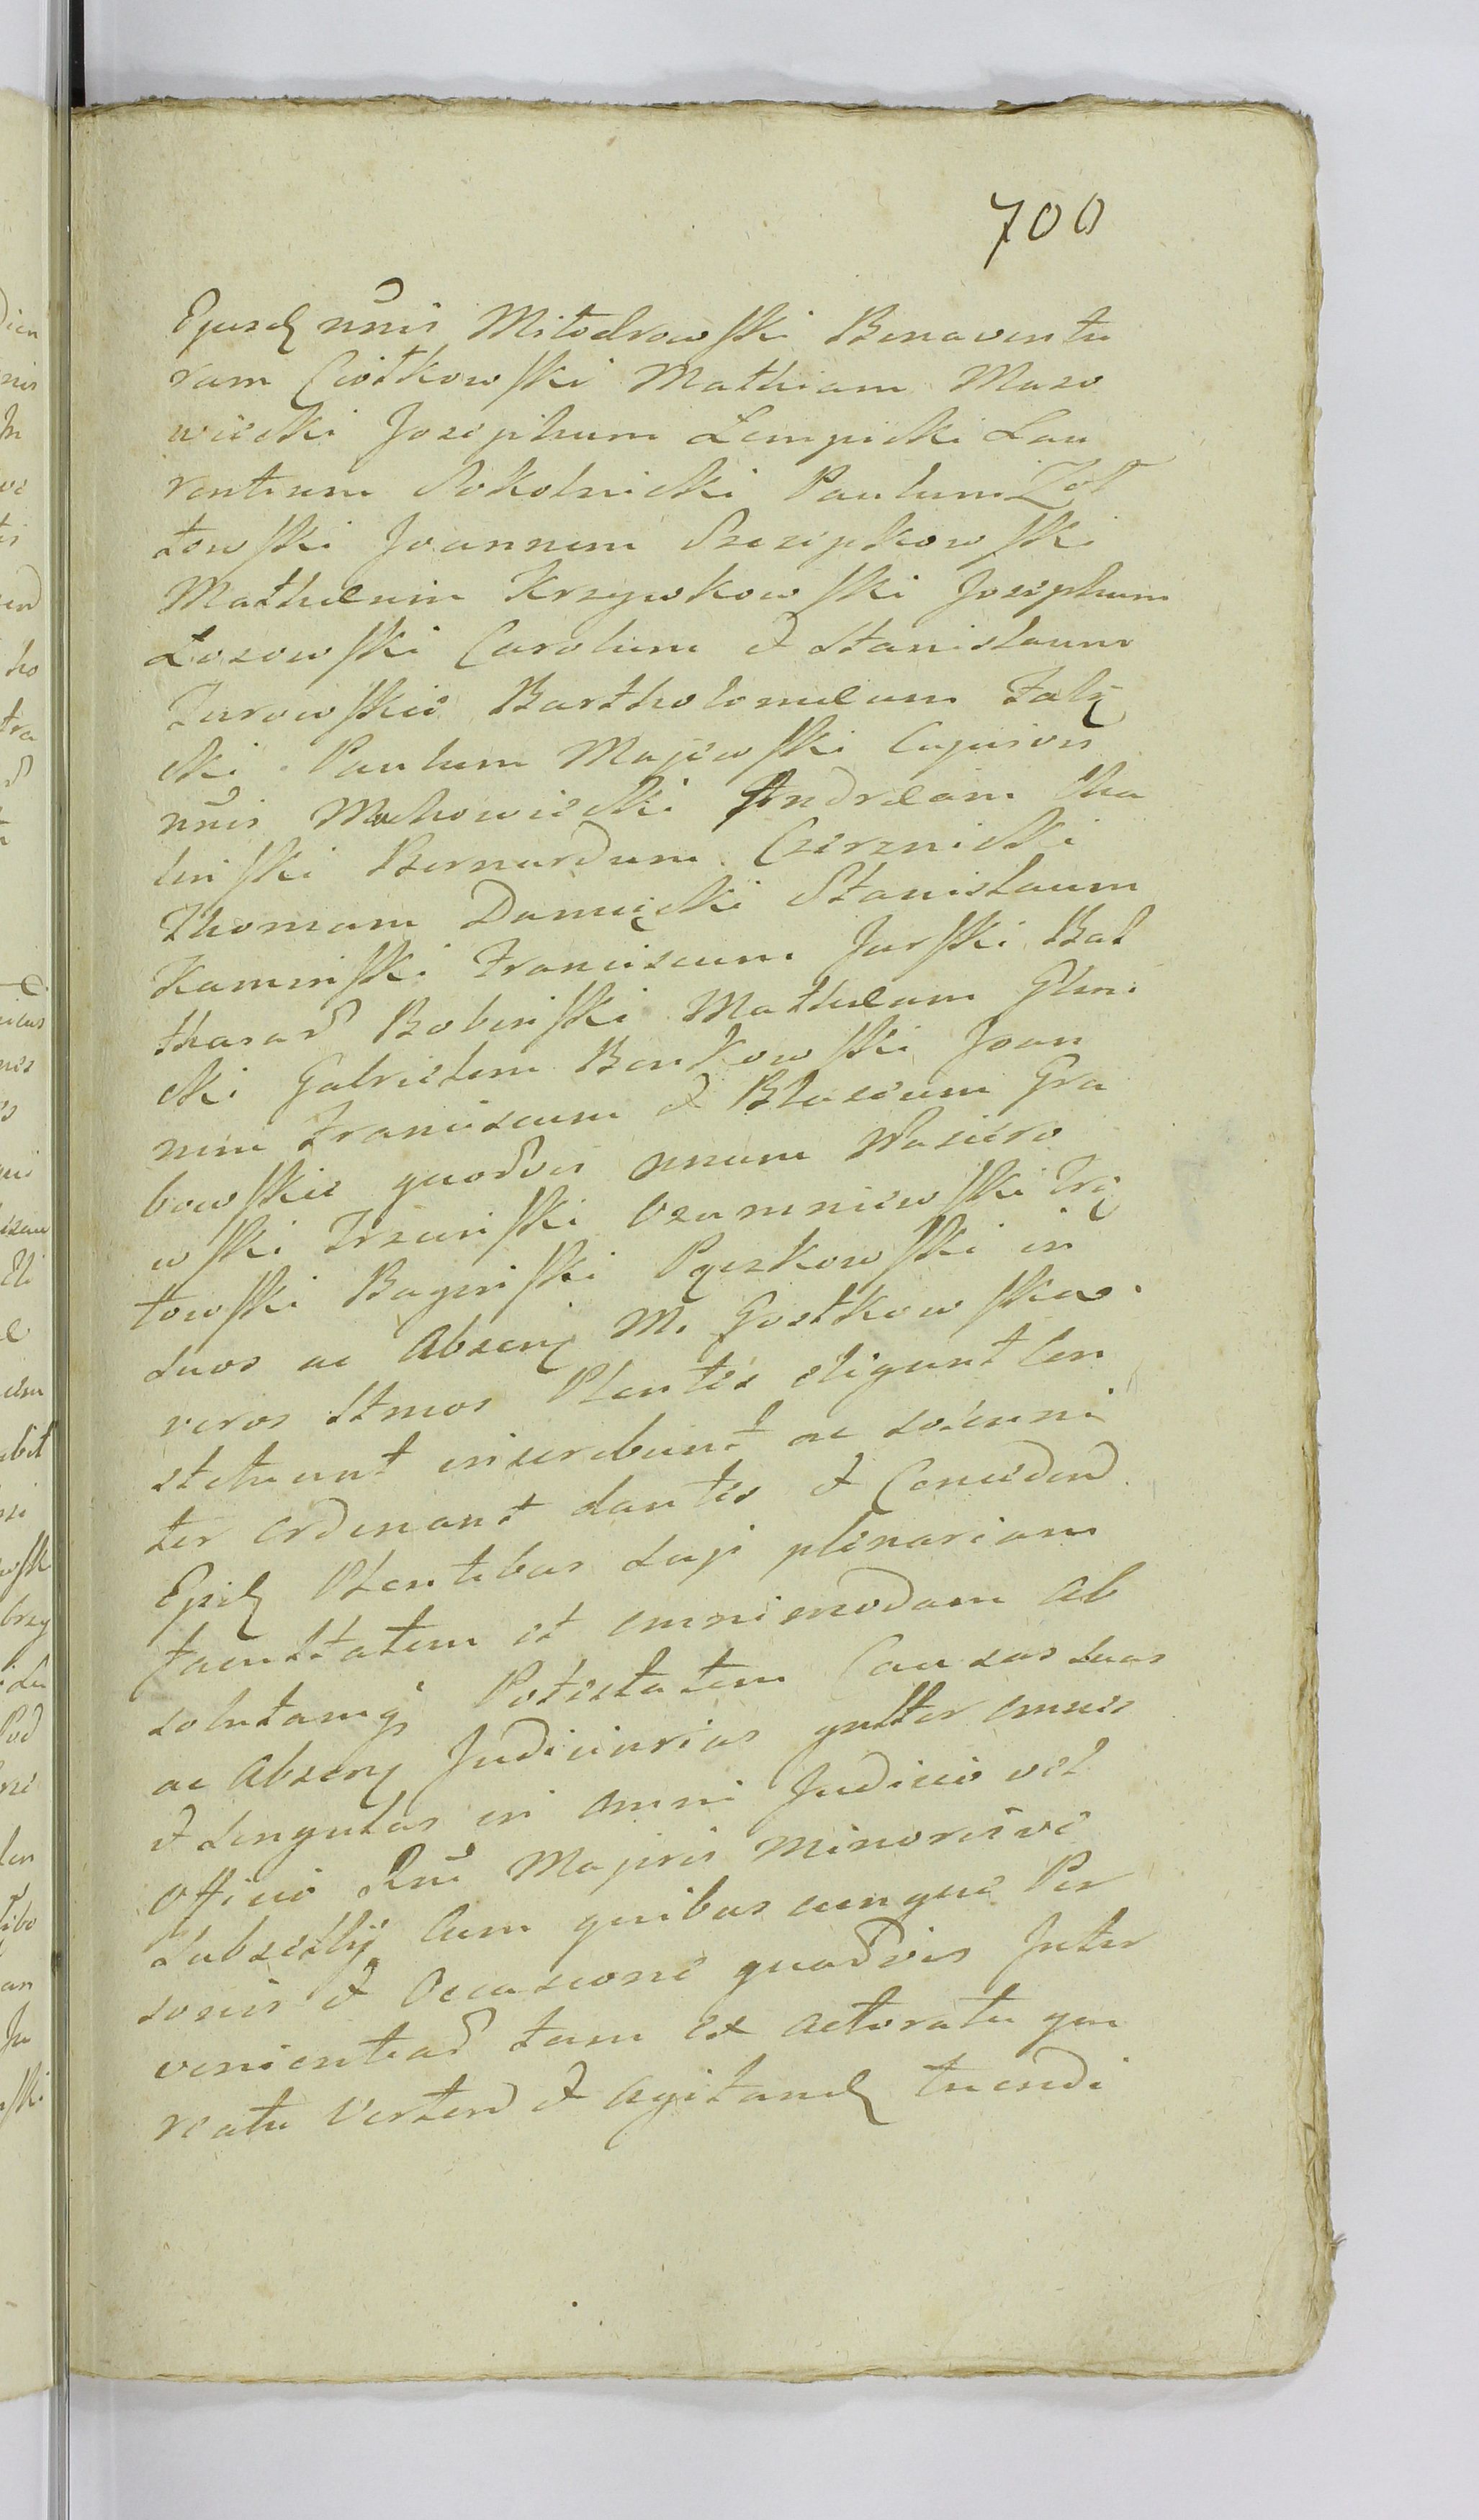 700
Ejusd nnis Miłodrowski Bonaventu
ram Ciołkowski Mathiam Mazo
wiecki Josephum Łempicki Lau
rentium Sokolnicki Paulum Żół
towski Joannem Szczepkowski
Mathæum Krzywkowski Josephum
Łozowski Carolum et Stanislaum
Żurowskie Bartholomæum Załę
cki Paulum Majewski Cujusvis
nnis Mochowiecki Andræam Cha
liński Bernardum Czerznicki
Thomam Damięcki Stanislaum
Kaminski Franciscum Jarski Bal
thasar Bobinski Mathæum Glini
cki Gabrielem Bońkowski Joan
nem Franciscum et Blasium Gra
bowskie quodvis nnum Wasiero
wski Trzcinski Czamniewski Trę
towski Baginski Pączkowski in
suos ac absen M. Gostkowskie
veros Ltmos Plentes eligunt con
stituunt inscribunt ac solenni
ter ordinant dantes et Conceden
Ejsd Plentibus suji plenariam
facultatem et omnimodam ab
solutamq Potestatem Causas suas
ac absen Judiciarias gnlter omnes
et singulas in omni Judicio vel
officio Rni Majoris minorisve
Subsellij cum quibuscunque Per
sonis et occasione quadvis Inter
venientiad tam ex actoratu qua
reatu Verten et agitand tuendi